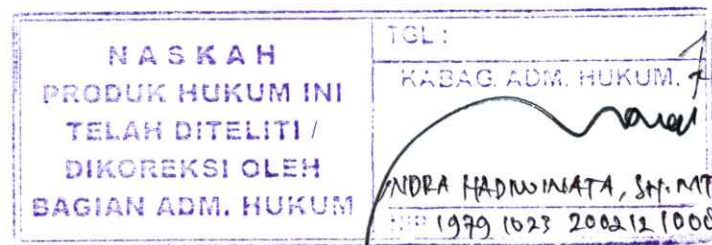 NASKAH
PRODUK HUKUM INI
TELAH DITELITI /
DIKOREKSI OLEH
BAGIAN ADM. HUKUM
TGL :
KABAG. ADM. HUKUM.
INDRA HADIWINATA, SH. MT
NIP 19791023 200212 1 008